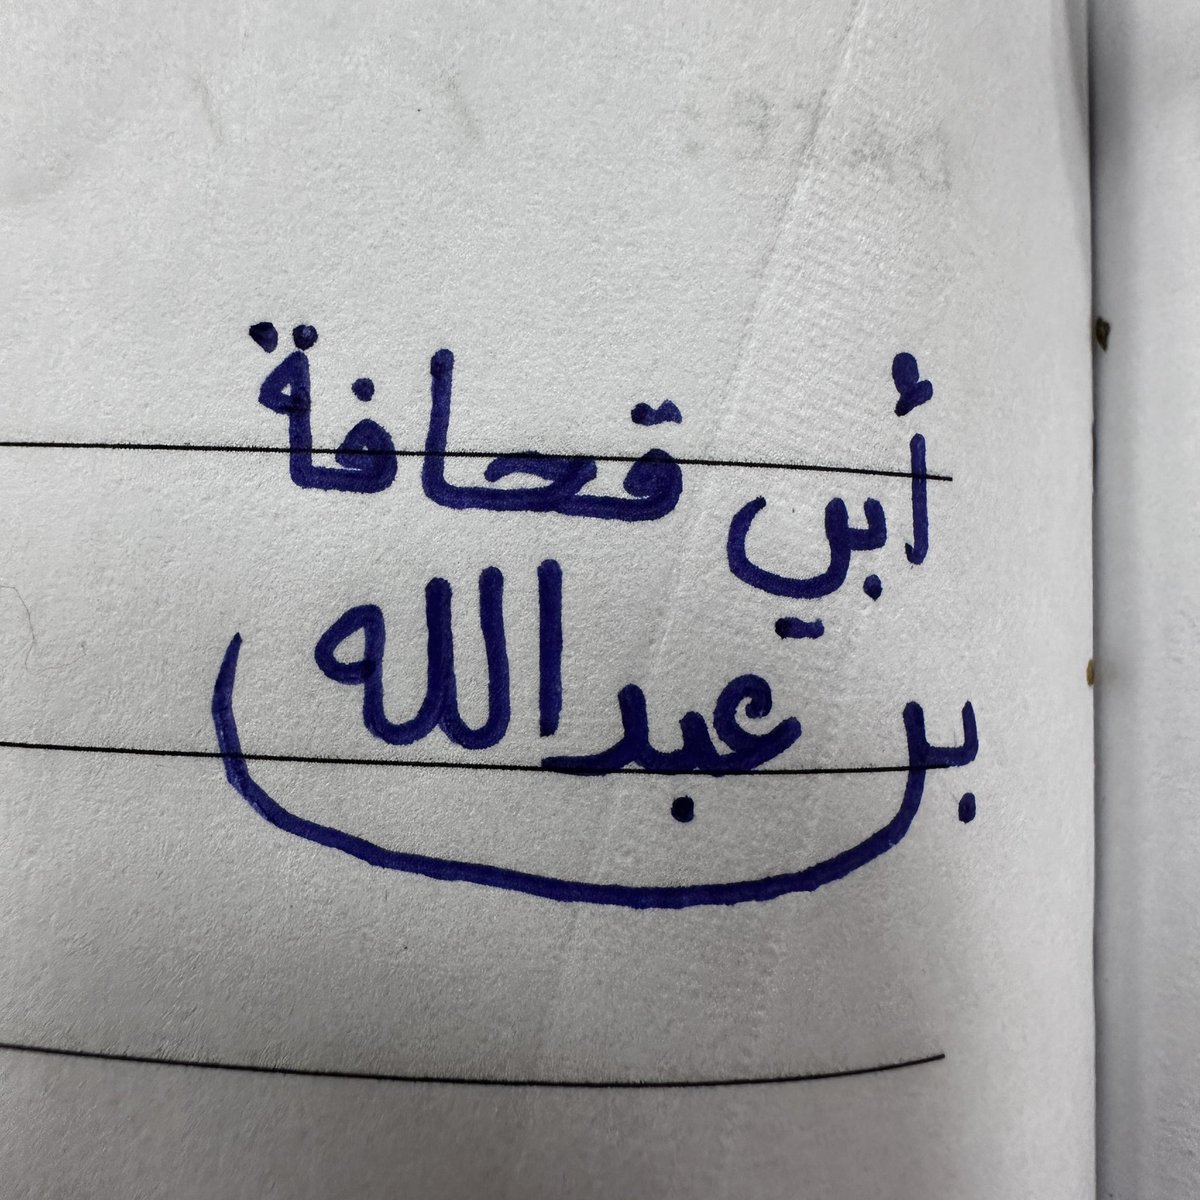 أبي قحافة
بن عبدالله